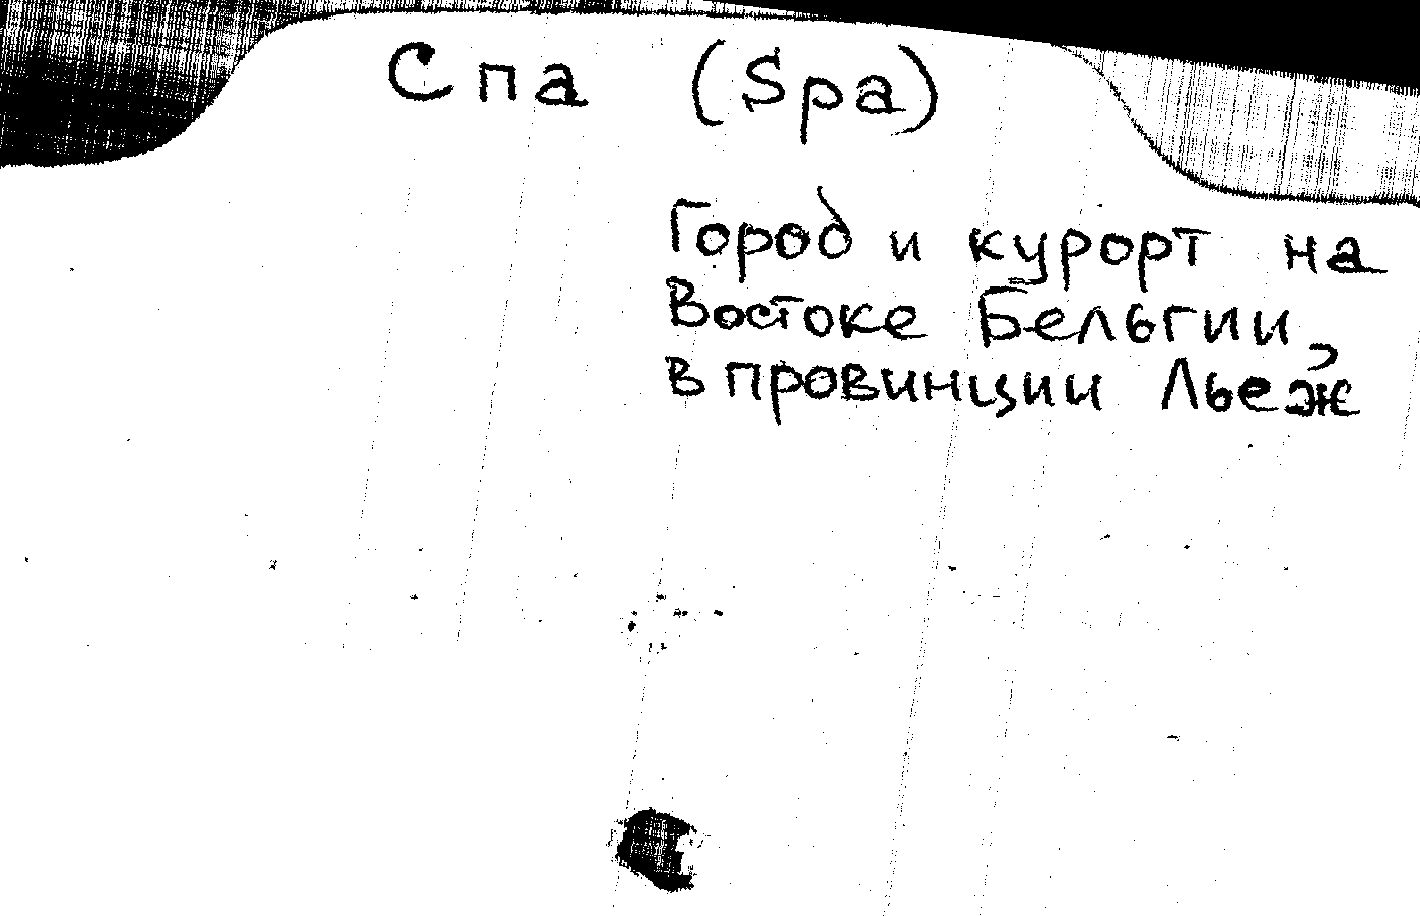 Спа (Spa)
Город и курорт на
Востоке Бельгии,
в провинции Льеж